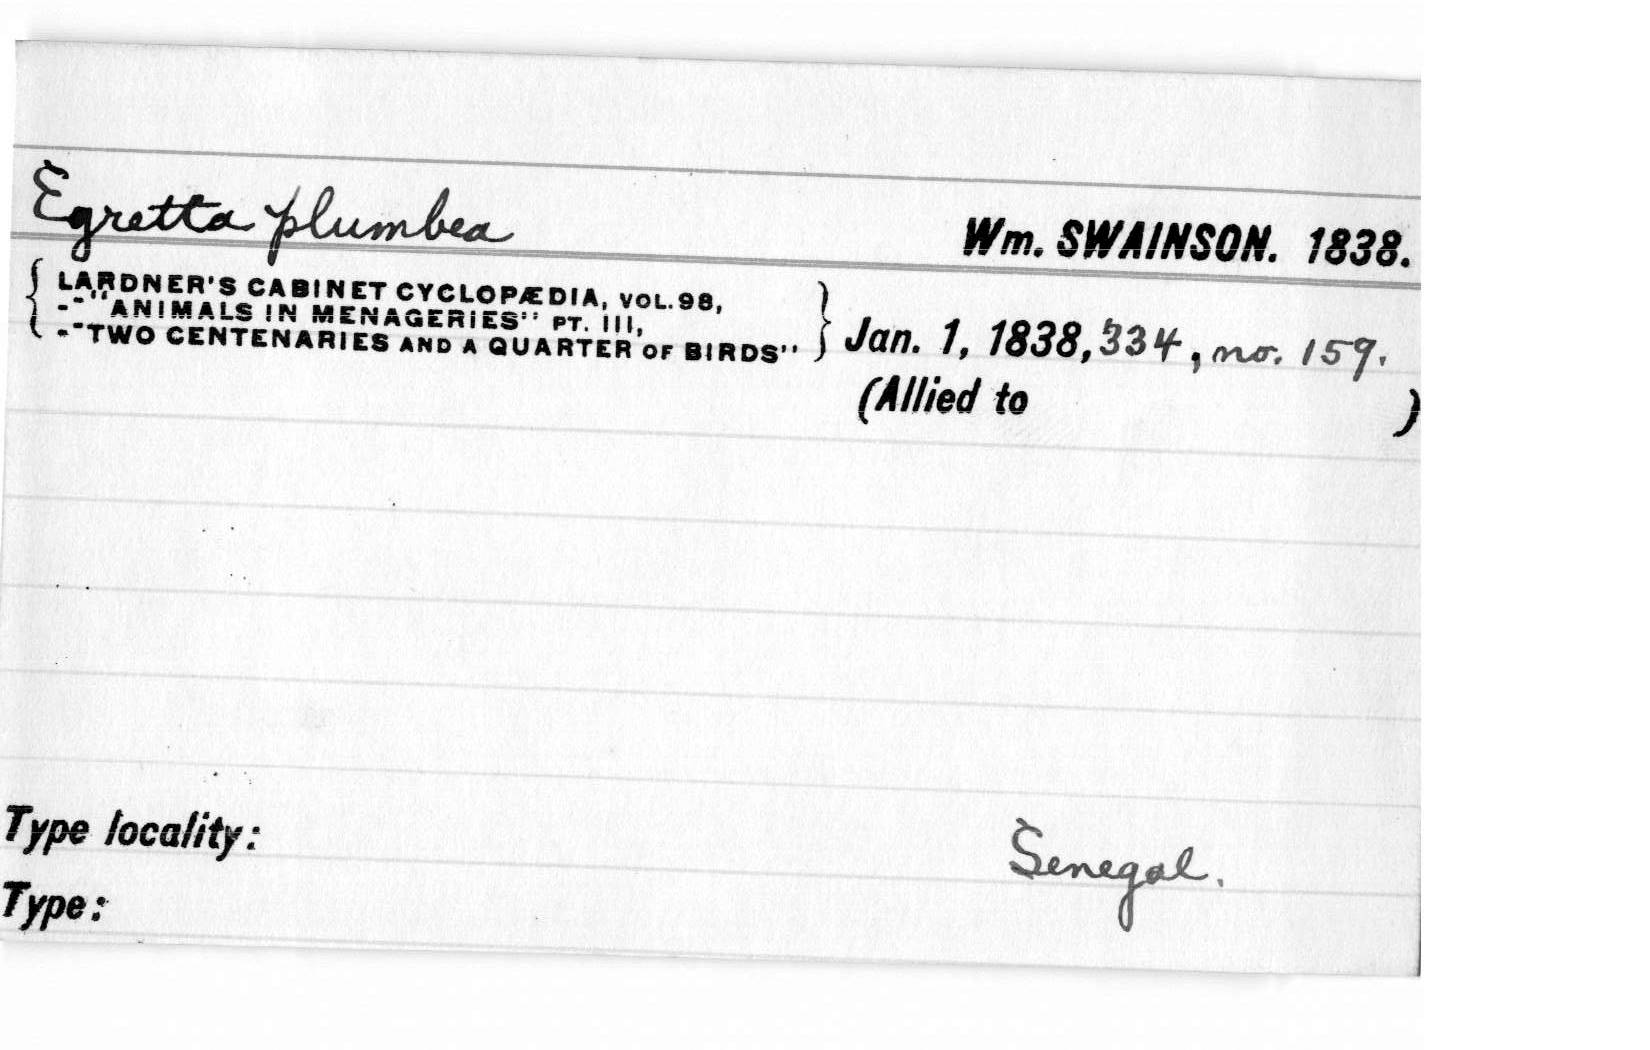 Egretta plumbea
Wm. SWAINSON. 1838.
{ LARDNER'S CABINET CYCLOPÆDIA, VOL. 98,
-"ANIMALS IN MENAGERIES" PT. III,
-"TWO CENTENARIES AND A QUARTER OF BIRDS" } Jan. 1, 1838, 334, no. 159.
(Allied to )
Type locality: Senegal.
Type: